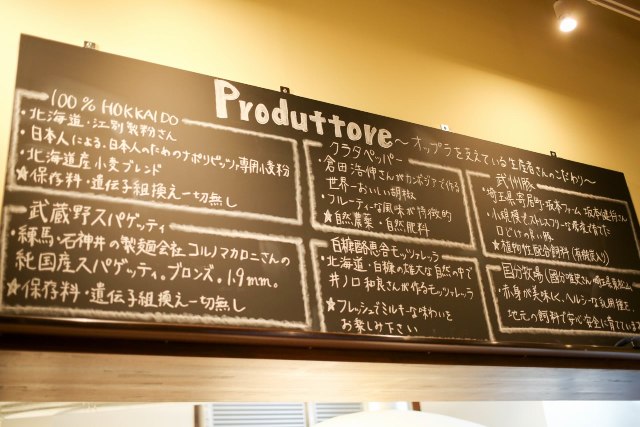 Produttore ～オップラを支えている生産者さんのこだわり～
100% HOKKAIDO
・北海道・江別製粉さん
・日本人による、日本人のためのナポリピッツァ専用小麦粉
・北海道産小麦ブレンド
★保存料・遺伝子組換え一切無し
武蔵野スパゲッティ
・練馬・石神井の製麺会社コルノマカロニさんの
純国産スパゲッティ。ブロンズ。1.9mm。
★保存料・遺伝子組換え一切無し
クラタペッパー
・倉田浩伸さんがカンボジアで作る
世界一おいしい胡椒
・フルーティーな風味が特徴的
★自然農薬・自然肥料
白糠酪恵舎モッツァレッラ
・北海道・白糠の雄大な自然の中で
井ノ口和良さんが作るモッツァレッラ
★フレッシュでミルキーな味わいを
お楽しみ下さい
武州豚
・埼玉県寄居町・坂本ファーム
・小規模でストレスフリーな
口どけの良い豚
★植物性配合飼料
・赤身が美味しく、ヘルシーな
地元の飼料で安心安全に育てています